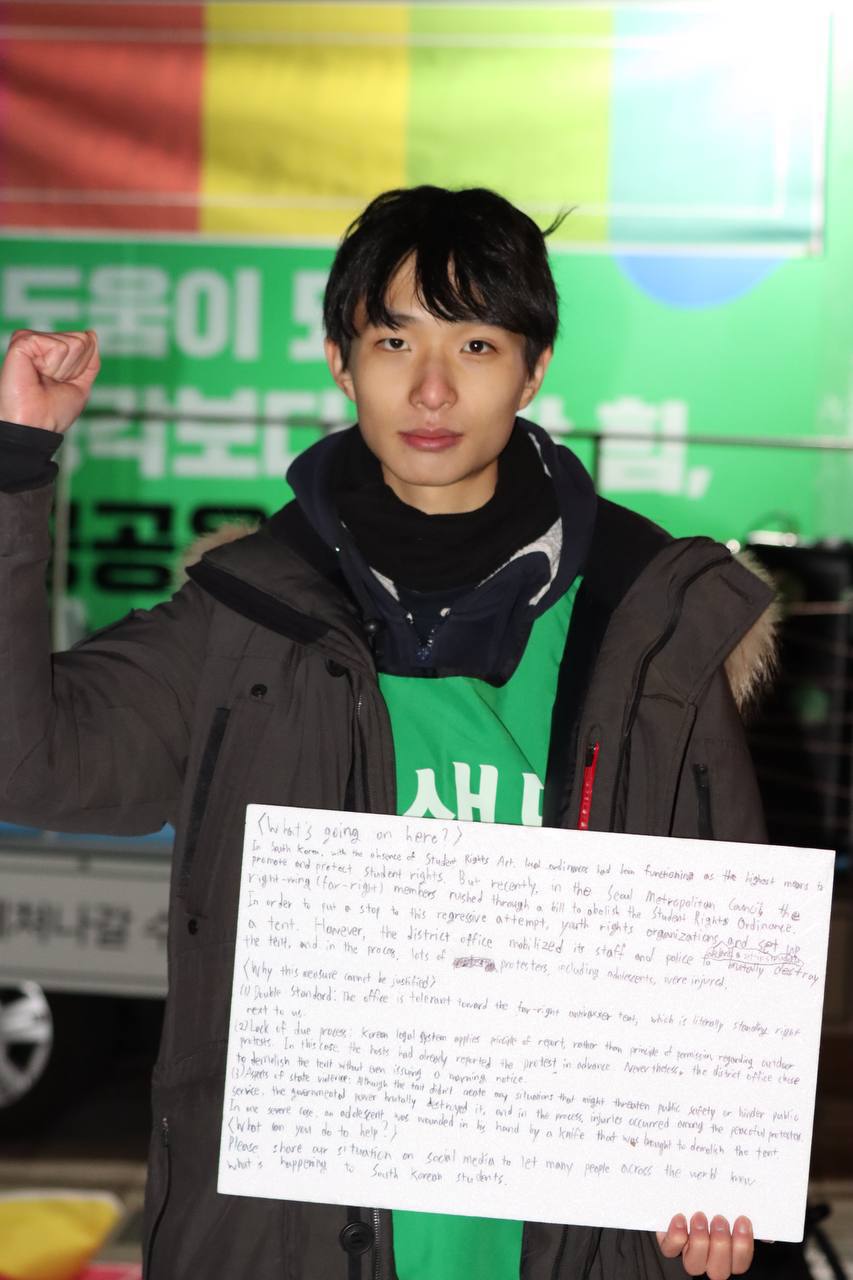 도움이
각보다
힘,
공공
새
체처나갈 수
<What's going on here?>
In South Korea, with the absence of Student Rights Act, local ordinances had been functioning as the highest means to
promote and protect student rights. But recently, in the Seoul Metropolitan Council, the
right-wing (far-right) members rushed through a bill to abolish the Student Rights Ordinance.
In order to put a stop to this regressive attempt, youth rights organizations and set up
a tent. However, the district office mobilized its staff and police to brutally destroy
the tent, and in the process, lots of protesters, including adolescents, were injured.
<Why this measure cannot be justified>
(1) Double Standard: The office is tolerant toward the far-right tent, which is literally standing right
next to us.
(2) Lack of due process: Korean legal system applies priciple of report, rather than principle of permission regarding outdoor
protests. In this case the hosts had already reported the protest in advance. Nevertheless, the district office chose
to demolish the tent without even issuing a warning notice.
(3) Aspects of state violence: Although the tent didn't create any situations that might threaten public safety or hinder public
service, the governmental power brutally destroyed it, and in the process, injuries occurred among the peaceful protestor.
In one severe case, an adolescent was wounded in his hand by a knife that was brought to demolish the tent
<What can you do to help?>
Please share our situation on social media to let many people across the world know
what's happening to South Korean students.